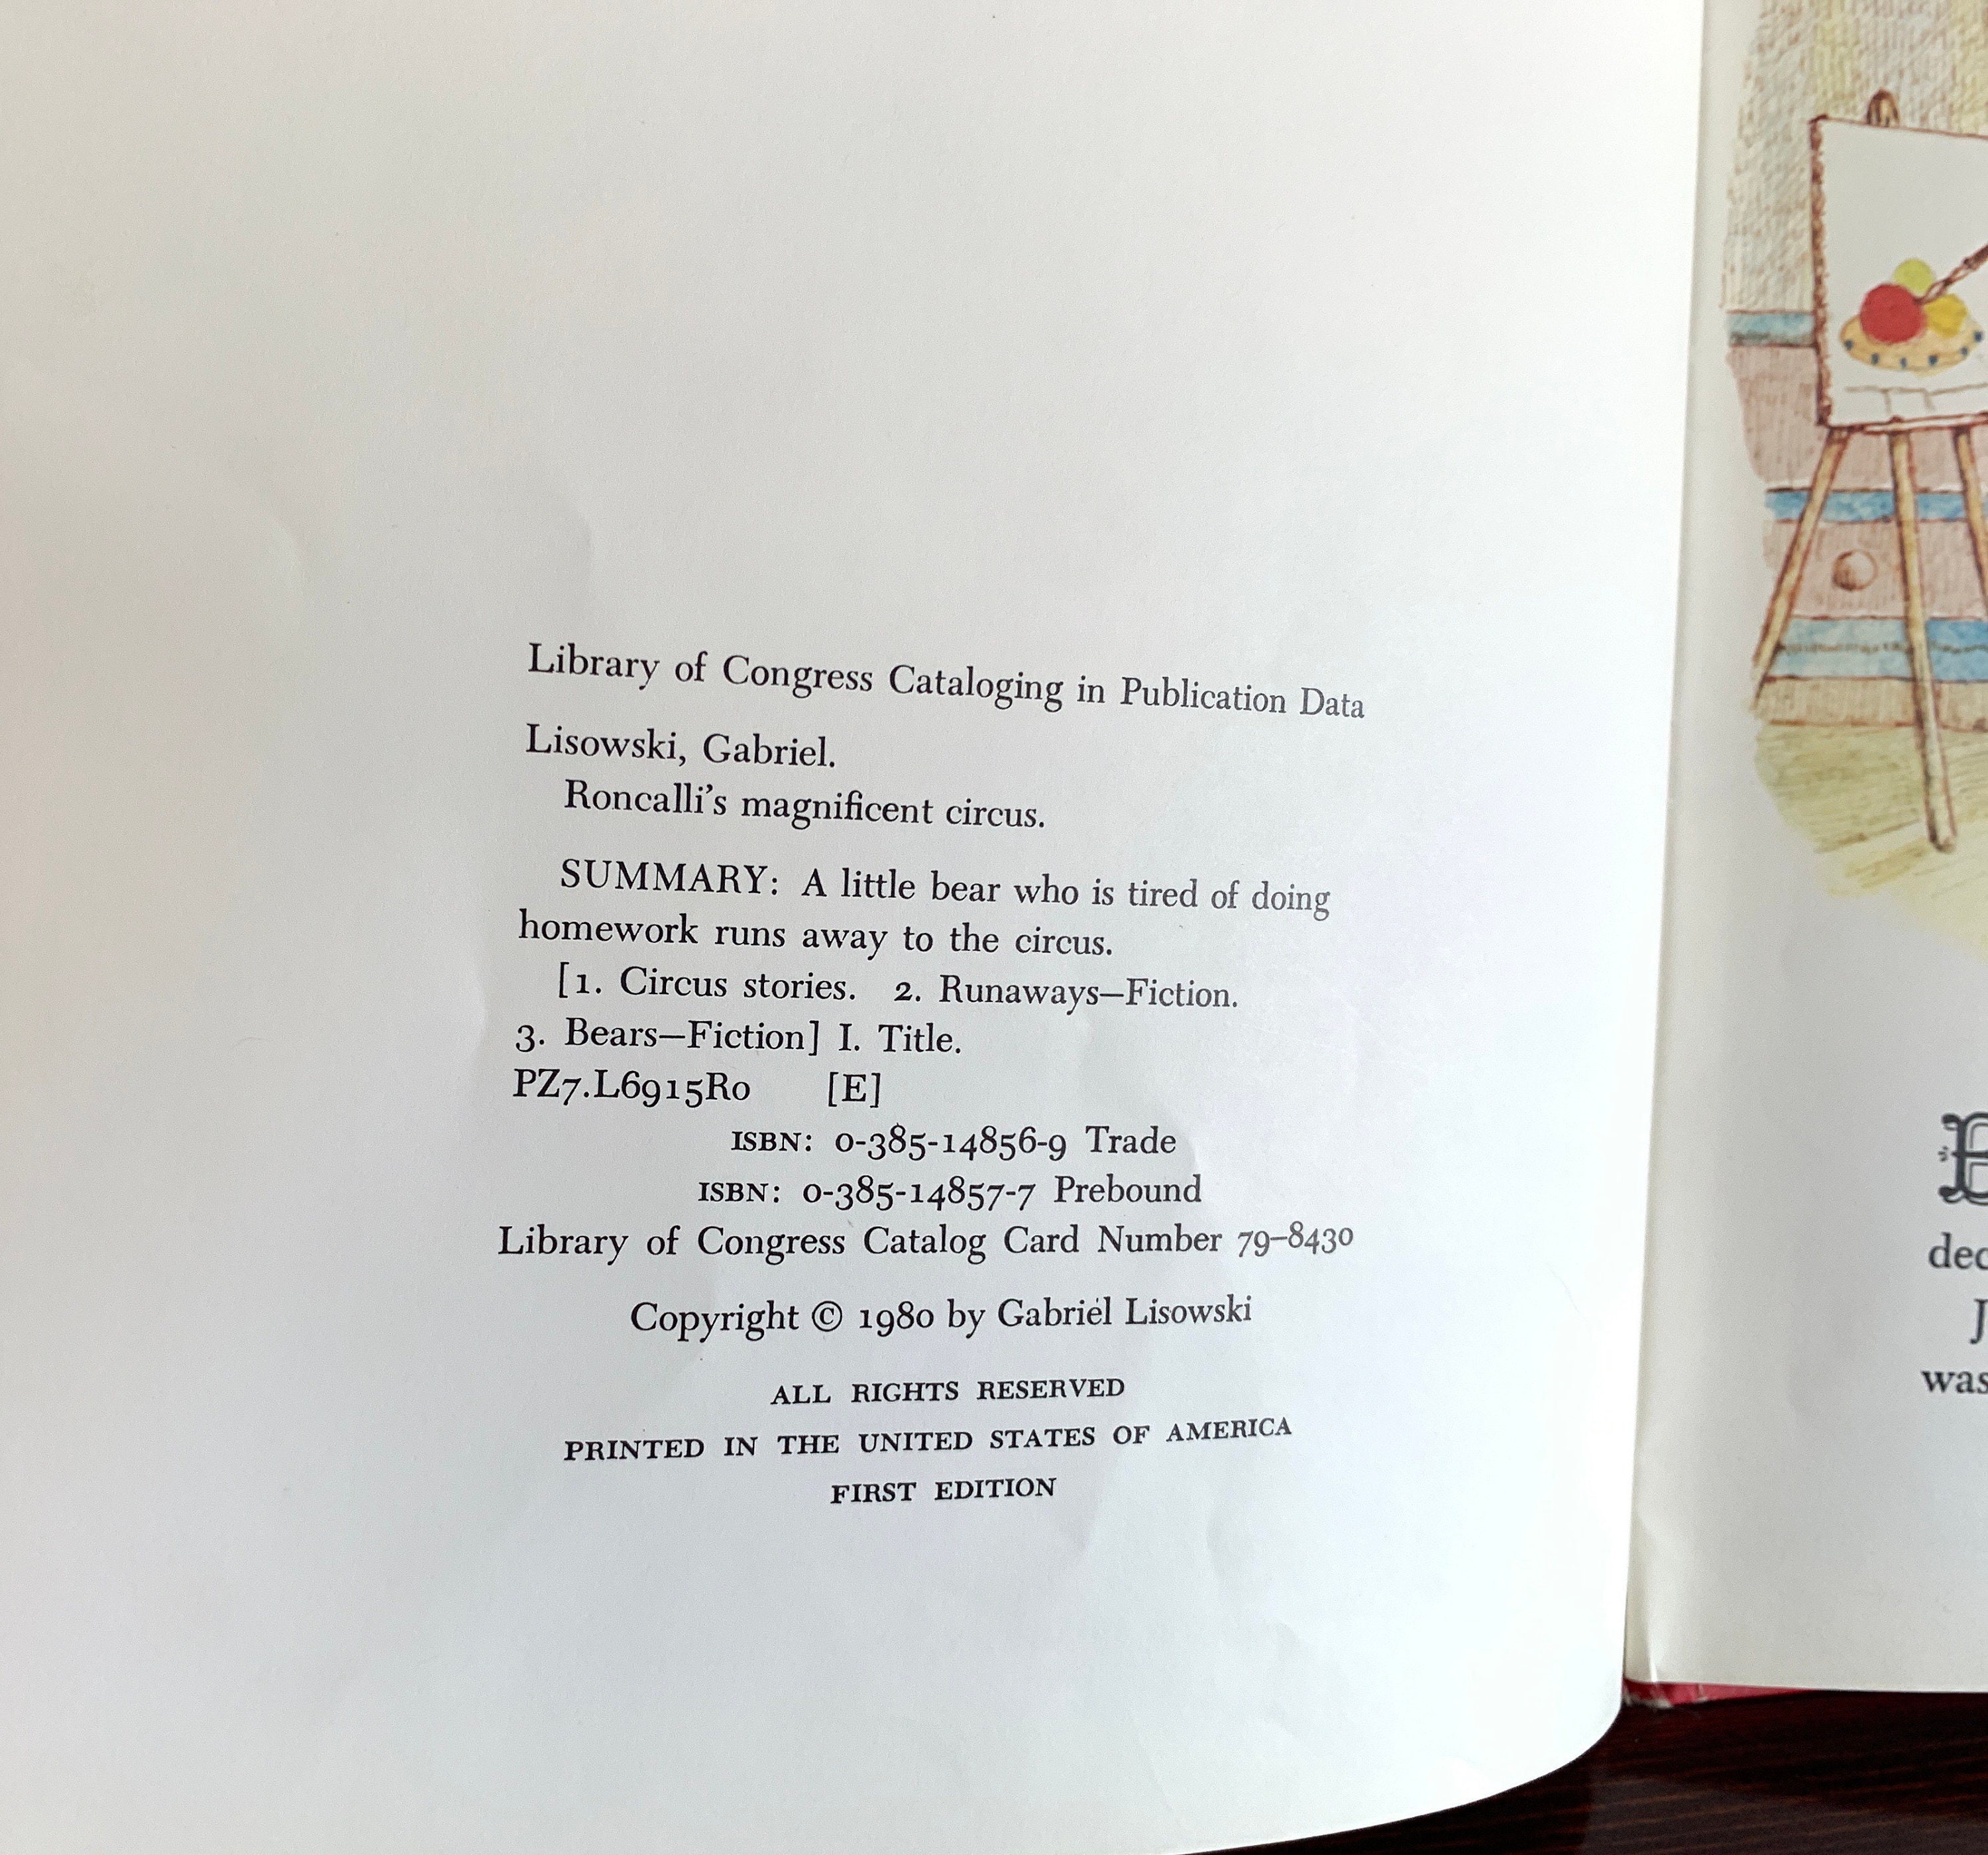 Library of Congress Cataloging in Publication Data
Lisowski, Gabriel.
Roncalli's magnificent circus.
SUMMARY: A little bear who is tired of doing
homework runs away to the circus.
[1. Circus stories. 2. Runaways—Fiction.
3. Bears—Fiction] I. Title.
PZ7.L6915Ro [E]
ISBN: 0-385-14856-9 Trade
ISBN: 0-385-14857-7 Prebound
Library of Congress Catalog Card Number 79–8430
Copyright © 1980 by Gabriel Lisowski
ALL RIGHTS RESERVED
PRINTED IN THE UNITED STATES OF AMERICA
FIRST EDITION
J
was